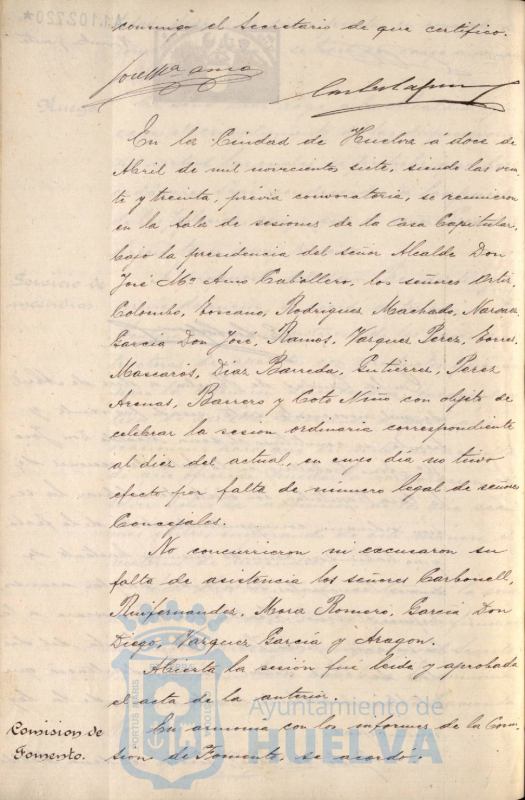 conmigo el Secretario de que certifico.
En la Ciudad de Huelva á doce de
Abril de mil novecientos siete, siendo las vein-
te y treinta, prévia convocatoria, se reunieron
en la Sala de sesiones de la Casa Capitular,
bajo la presidencia del señor Alcalde Don
José Mª Amo Caballero, los señores Ortiz,
Colombo, Toscano, Rodriguez Machado, Narvaez
Garcia Don José, Ramos, Vazquez Perez, Torres
Mascarós, Diaz Barreda, Gutierrez, Perez
Arenas, Barrero y Coto Niño con objeto de
celebrar la sesion ordinaria correspondiente
al diez del actual, en cuyo día no tuvo
efecto por falta de número legal de señores
Concejales.
No concurrieron ni excusaron su
falta de asistencia los señores Carbonell,
Ruifernandez, Mora Romero, Garcia Don
Diego, Vazquez García y Aragon.
Abierta la sesión fué leida y aprobada
el acta de la anterior.
Comision de
Fomento.
En armonía con los informes de la Comi-
sion de Fomento, se acordó:
PORTUS MARIS
Ayuntamiento de
HUELVA